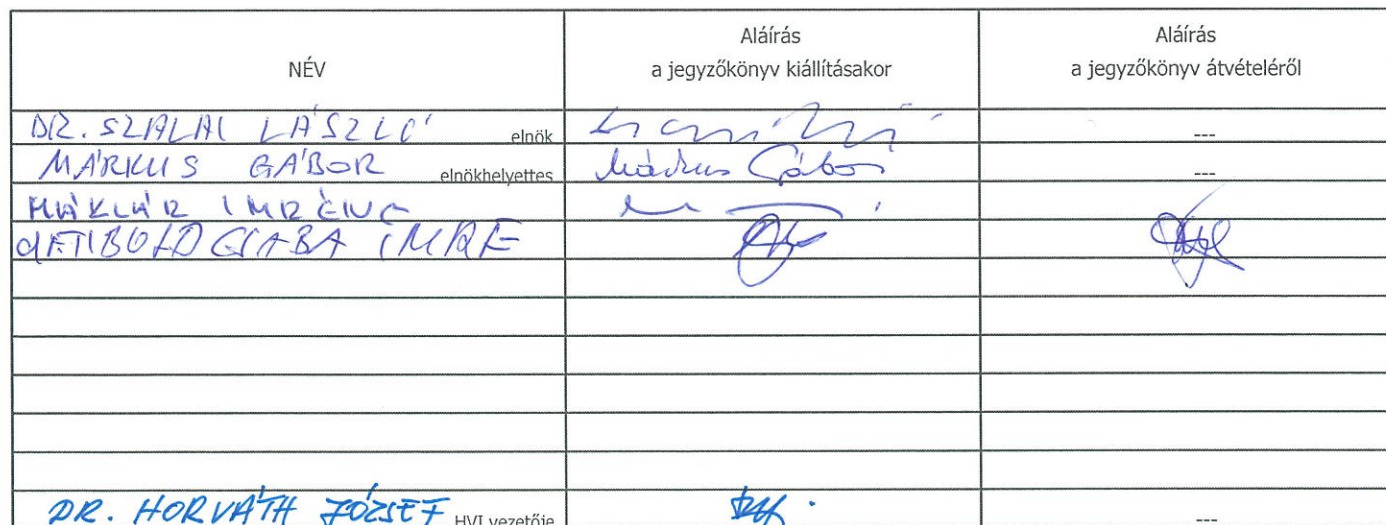 NÉV Aláírás a jegyzőkönyv kiállításakor Aláírás a jegyzőkönyv átvételéről
DR. SZALAI LÁSZLÓ elnök ---
MÁRKUS GÁBOR elnökhelyettes Márkus Gábor ---
MAKLÁR IMRÉNÉ
CSABA IMRE
DR. HORVÁTH JÓZSEF HVI vezetője ---